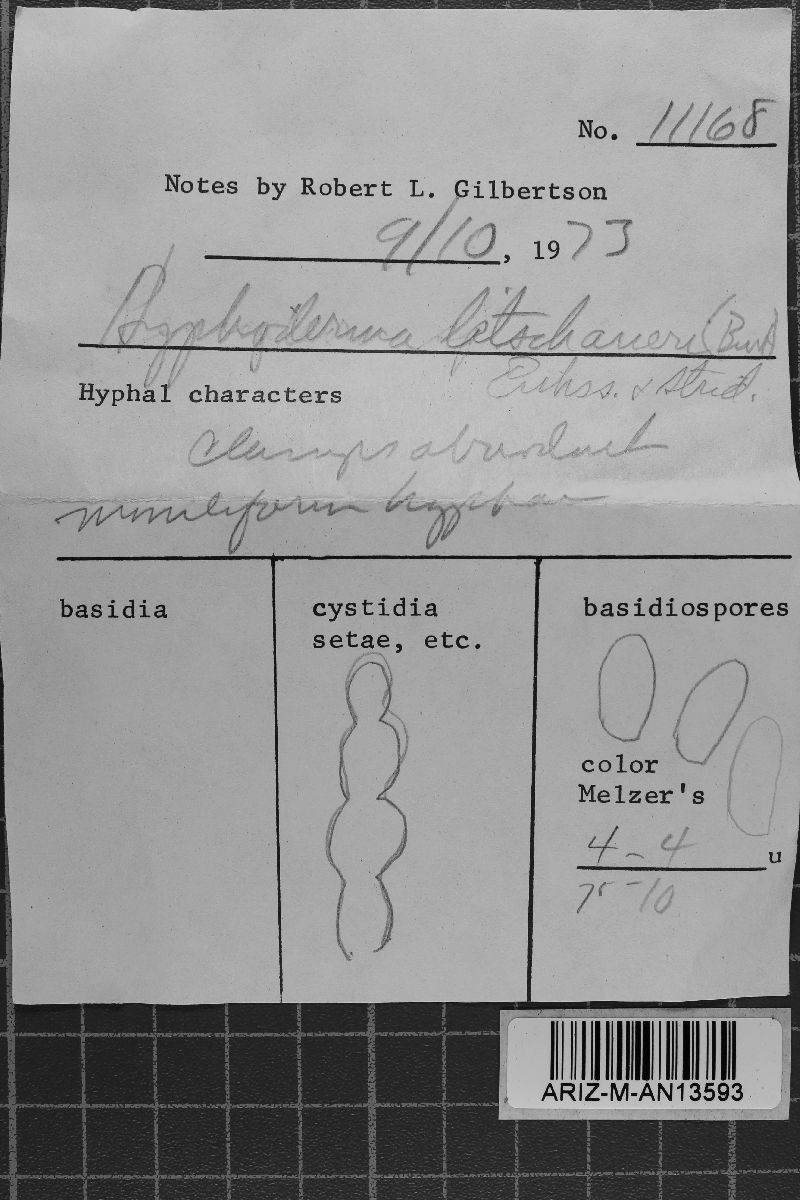 No. 11168
Notes by Robert L. Gilbertson
9/10, 1973
Hyphoderma litschaueri (Burt)
Erikss. & Strid.
Hyphal characters
Clamps abundant
moniliform hyphae
basidia
cystidia
setae, etc.
basidiospores
color
Melzer's
4 - 4 u
75 - 10
ARIZ-M-AN13593